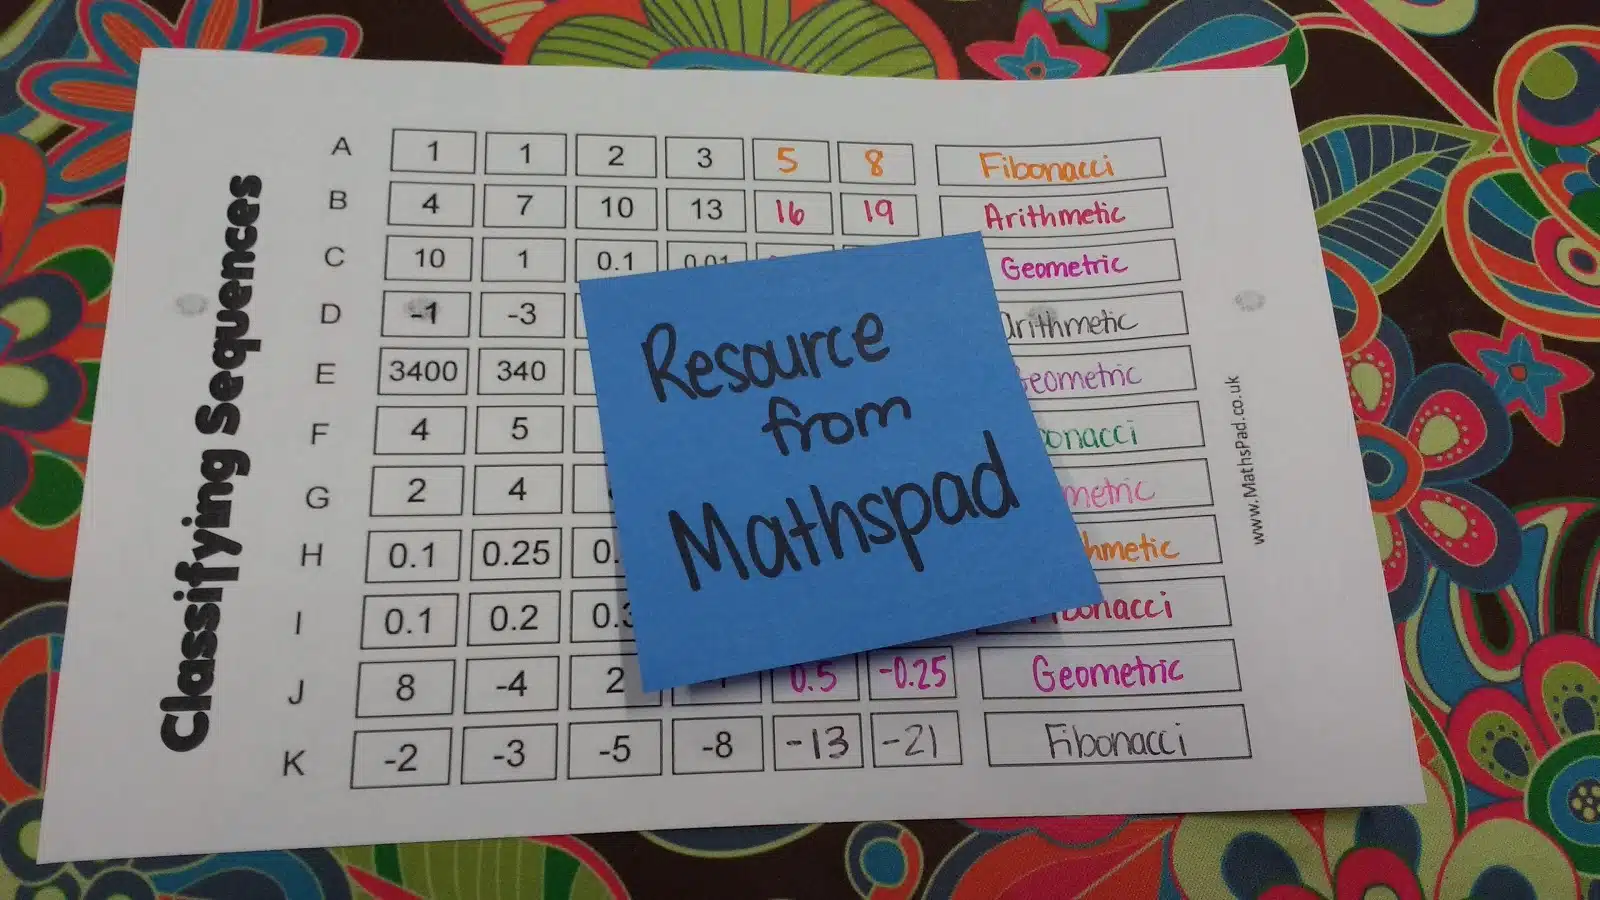 Classifying Sequences
A 1 1 2 3 5 8 Fibonacci
B 4 7 10 13 16 19 Arithmetic
C 10 1 0.1 0.01 Geometric
D -1 -3 arithmetic
E 3400 340 Geometric
F 4 5 onacci
G 2 4 metric
H 0.1 0.25 0. hmetic
I 0.1 0.2 0.3 Fibonacci
J 8 -4 2 0.5 -0.25 Geometric
K -2 -3 -5 -8 -13 -21 Fibonacci
Resource
from
Mathspad
www.MathsPad.co.uk